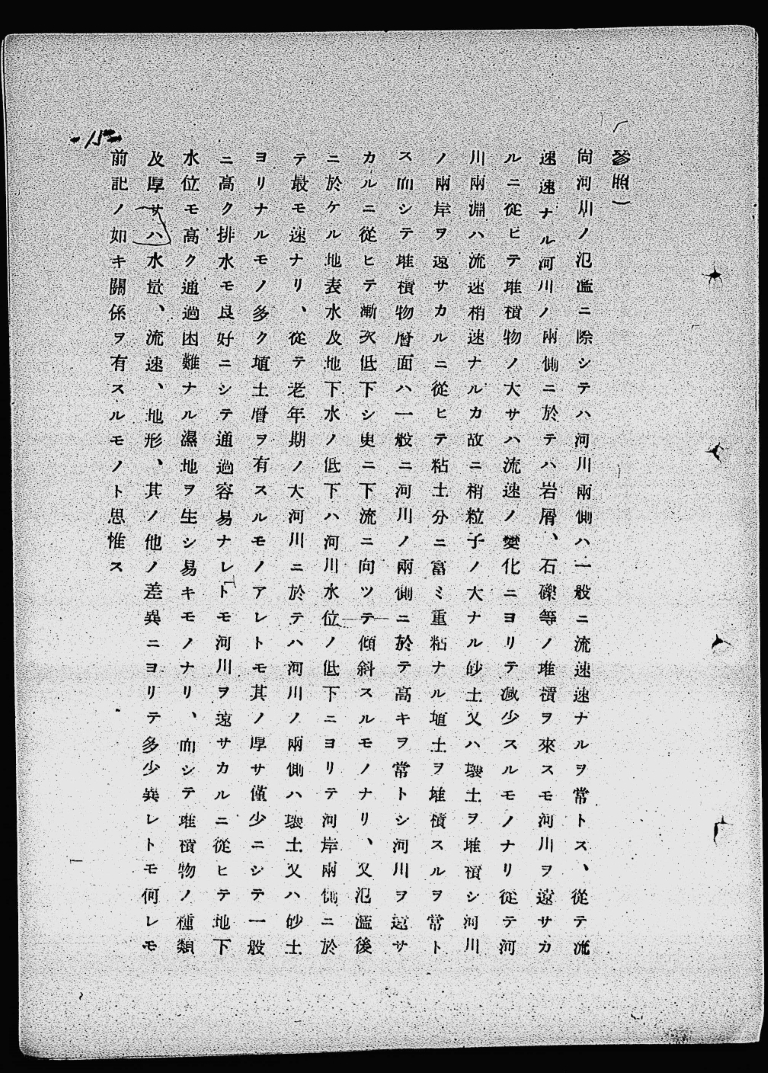 參照)
尙河川ノ氾濫ニ際シテハ河川兩側ハ一般ニ流速速ナルヲ常トス、從テ流
速速ナル河川ノ兩側ニ於テハ岩屑、石礫等ノ堆積ヲ來スモ河川ヲ遠サカ
ルニ從ヒテ堆積物ノ大サハ流速ノ變化ニヨリテ減少スルモノナリ從テ河
川兩淵ハ流速稍速ナルカ故ニ稍粒子ノ大ナル砂土又ハ壤土ヲ堆積シ河川
ノ兩岸ヲ遠サカルニ從ヒテ粘土分ニ富ミ重粘ナル埴土ヲ堆積スルヲ常ト
ス而シテ堆積物層面ハ一般ニ河川ノ兩側ニ於テ高キヲ常トシ河川ヲ遠サ
カルニ從ヒテ漸次低下シ更ニ下流ニ向ツテ傾斜スルモノナリ、又氾濫後
ニ於ケル地表水及地下水ノ低下ハ河川水位ノ低下ニヨリテ河岸兩側ニ於
テ最モ速ナリ、從テ老年期ノ大河川ニ於テハ河川ノ兩側ハ壤土又ハ砂土
ヨリナルモノ多ク埴土層ヲ有スルモノアレトモ其ノ厚サ僅少ニシテ一般
ニ高ク排水モ良好ニシテ通過容易ナレトモ河川ヲ遠サカルニ從ヒテ地下
水位モ高ク通過困難ナル濕地ヲ生シ易キモノナリ、而シテ堆積物ノ種類
及厚サハ水量、流速、地形、其ノ他ノ差異ニヨリテ多少異レトモ何レモ
前記ノ如キ關係ヲ有スルモノト思惟ス